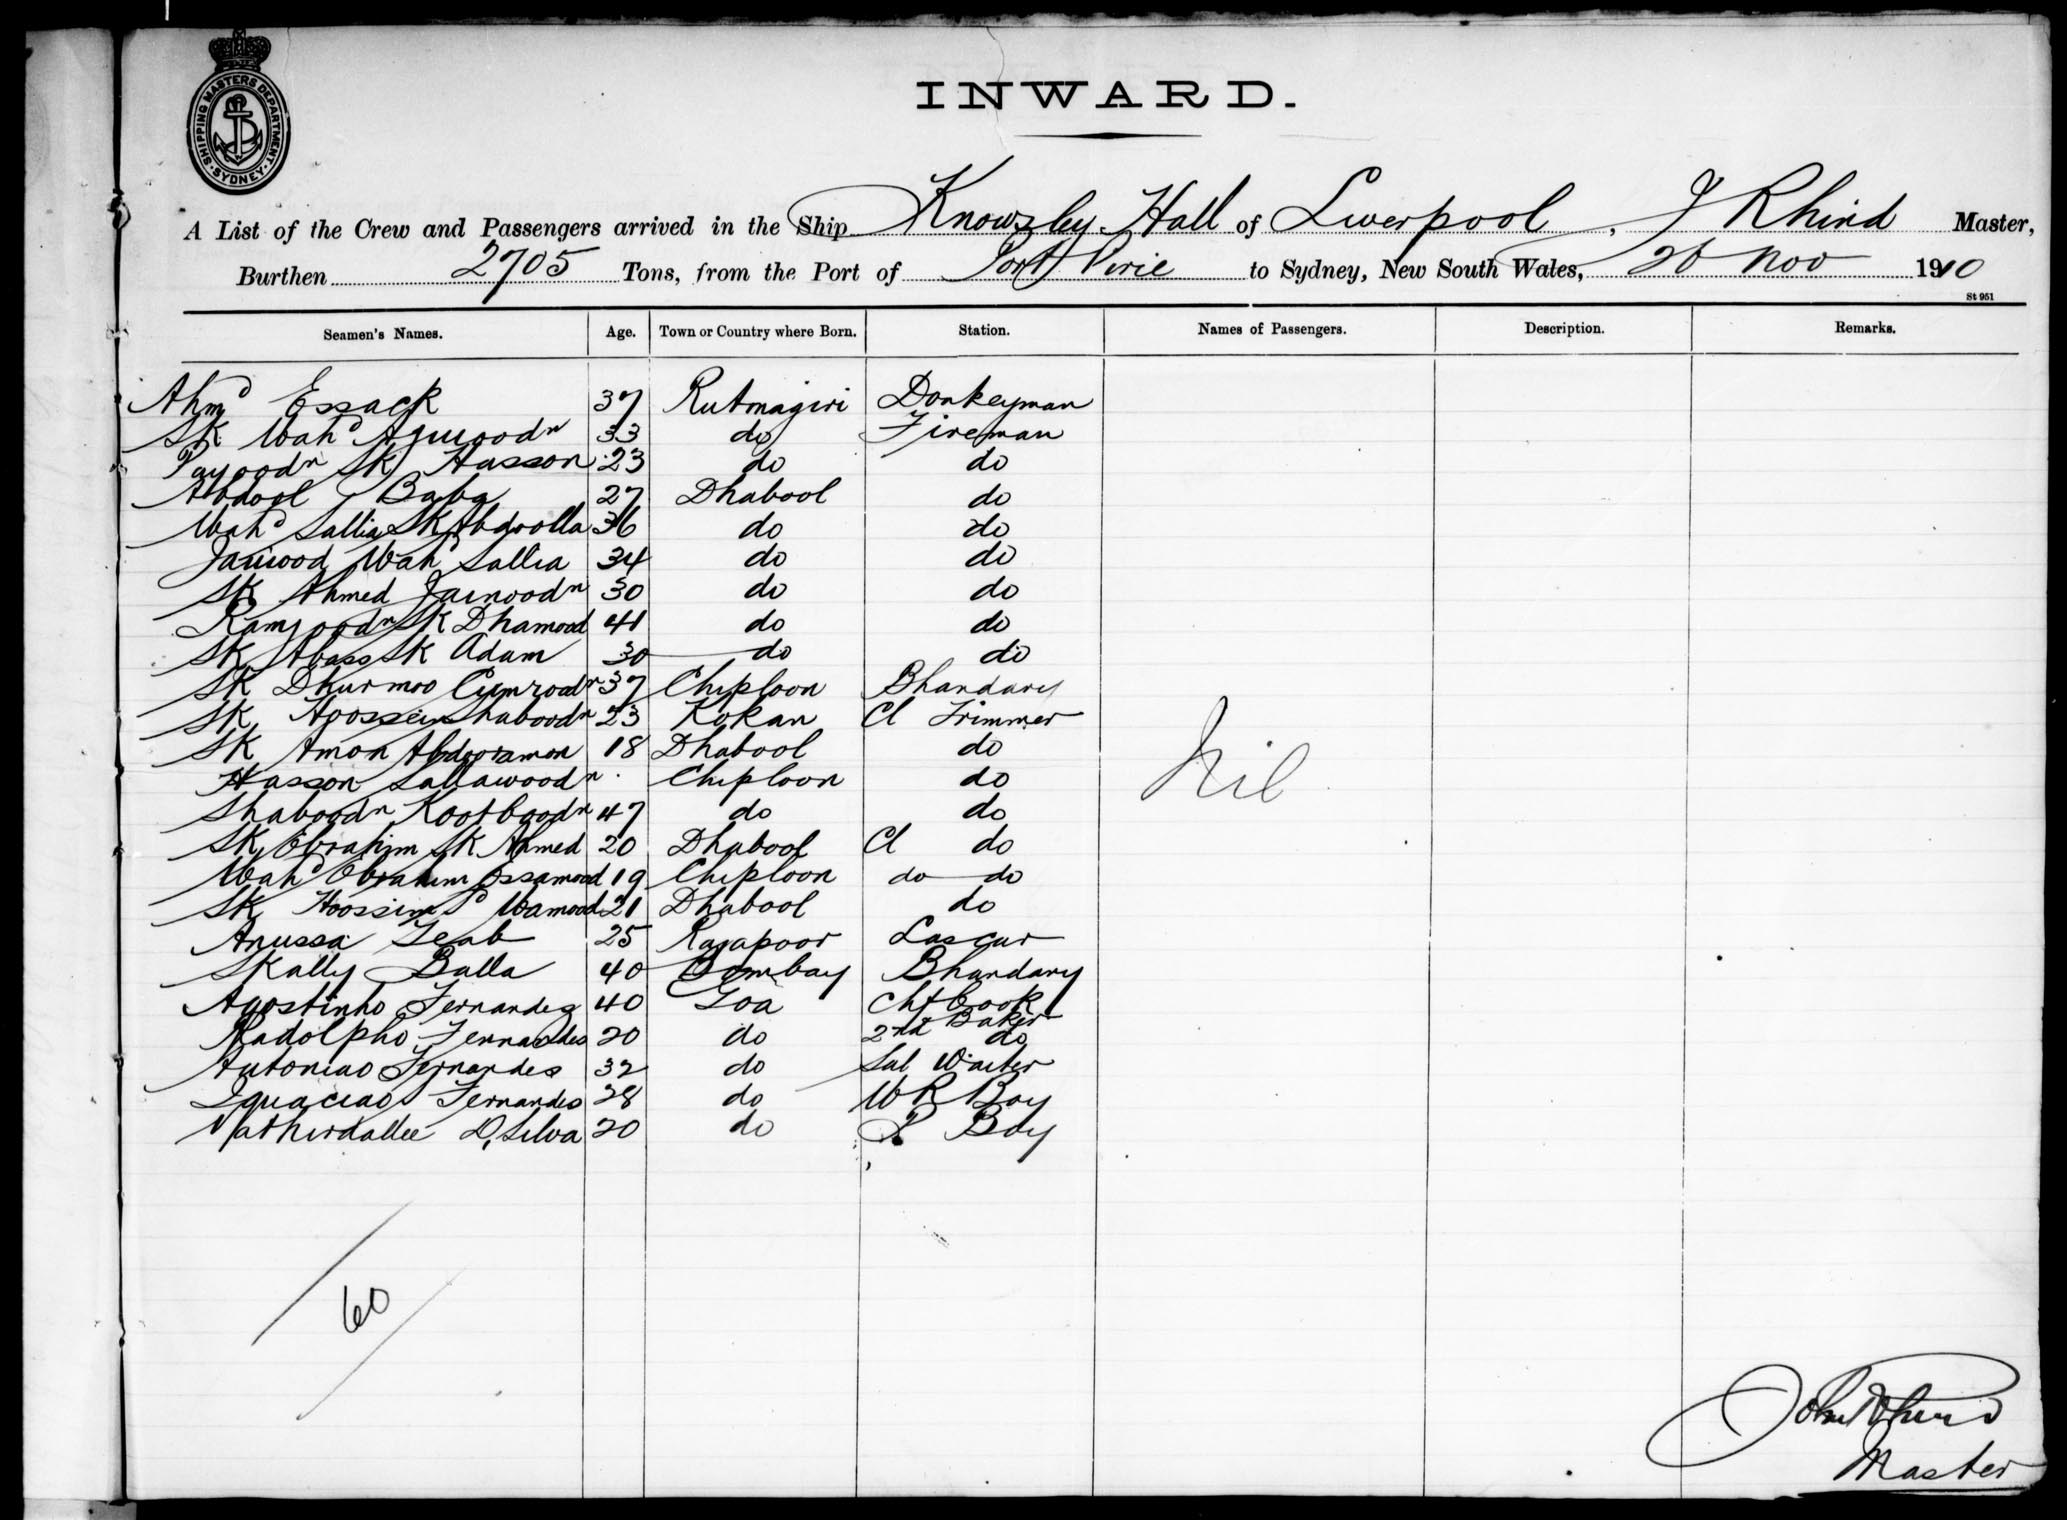 SHIPPING MASTERS DEPARTMENT
SYDNEY
INWARD.
A List of the Crew and Passengers arrived in the Ship Knowsley Hall of Liverpool, J Rhind Master,
Burthen 2705 Tons, from the Port of Port Pirie to Sydney, New South Wales, 26 Nov 1910
St 951
Seamen's Names. Age. Town or Country where Born. Station. Names of Passengers. Description. Remarks.
Ahmd Essack 37 Rutmagiri Donkeyman
SK Mahd 33 do Fireman
SK Hasson 23 do do
Abdool Baba 27 Dhabool do
Mahd Sallia SK Abdoolla 36 do do
Jainood Mahd Sallia 34 do do
SK Ahmed Jainoodn 30 do do
Kamjoodn SK Dhamood 41 do do
SK Abass SK Adam 30 do do
SK Dhurmoo Cumroodn 37 Chiploon Bhandary
SK Hoossein Shaboodn 23 Kokan Cl Trimmer
SK Amon Abdooramon 18 Dhabool do
Hasson Sallawoodn Chiploon do
Shaboodn Kootboodn 47 do do
SK Ebrahim SK Ahmed 20 Dhabool Cl do
Mahd Ebrahim Essamood 19 Chiploon do do
SK Hoossim Mamood 21 Dhabool do
Anussa Zeab 25 Rajapoor Lascar
SKally Balla 40 Bombay Bhandary
Agostinho Fernandez 40 Goa Chf Cook
Baker
Radolpho Fernandes 20 do 2nd do
Antoniao Fernandes 32 do Sal Waiter
Ignaciao Fernandes 28 do M R Boy
D, Silva 20 do P Boy
Nil
60
John Rhind
Master